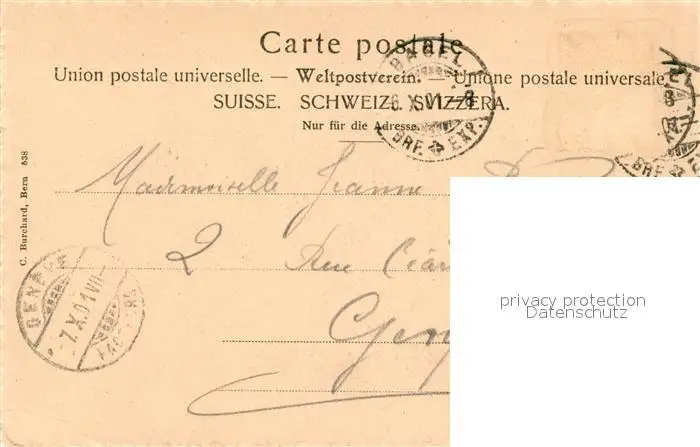 Carte postale
Union postale universelle. — Weltpostverein. — Unione postale universale
SUISSE. SCHWEIZ. SVIZZERA.
Nur für die Adresse.
C. Burchard, Bern 638
BASEL
X.01.-8
BRF. EXP.
Mademoiselle Jeanne
2 Rue
GENÈVE
7.X.01.VII-
privacy protection
Datenschutz